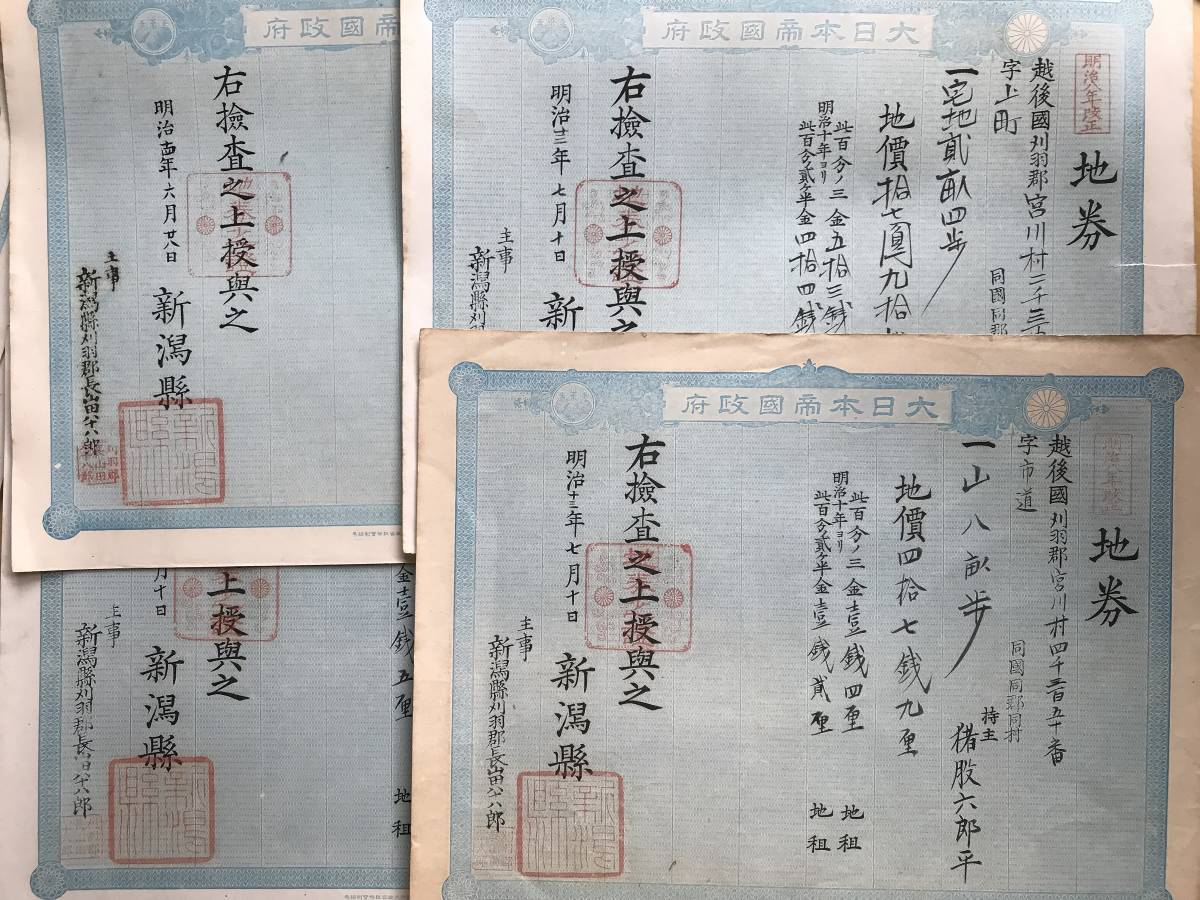 大日本帝國政府
明治八年改正
地券
越後國刈羽郡宮川村二千三
字上町
同國同郡
一宅地貳畝四歩
地價拾七圓九拾
此百分ノ三金五拾三錢
明治十年ヨリ
此百分ノ貳ケ半金四拾四錢
右撿査之上授與之
明治十三年七月十日
新
主事
新潟縣刈羽
帝國政府
右撿査之上授與之
明治十四年六月廿八日
新潟縣
主事
新潟縣刈羽郡長山田八十八郎
大日本帝國政府
明治八年改正
地券
越後國刈羽郡宮川村四千三百五十番
字市道
同國同郡同村
持主 猪股六郎平
一山八畝歩
地價四拾七錢九厘
此百分ノ三金壹錢四厘 地租
明治十年ヨリ
此百分ノ貳ケ半金壹錢貳厘 地租
右撿査之上授與之
明治十三年七月十日
新潟縣
主事
新潟縣刈羽郡長山田八十八郎
金壹錢五厘 地租
上授與之
月十日
新潟縣
主事
新潟縣刈羽郡長山田八十八郎